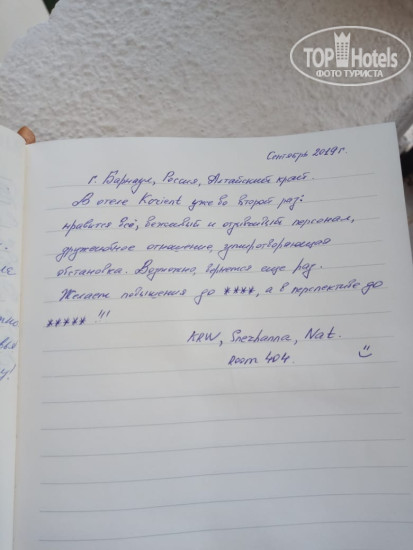 TOPHotels
ФОТО ТУРИСТА
Сентябрь 2019г.
г. Барнаул, Россия, Алтайский край.
В отеле Korient уже во второй раз:
нравится всё, вежливый и отзывчивый персонал,
дружелюбное отношение, умиротворяющая
обстановка. Возможно, вернемся еще раз.
Желаем повышения до ****, а в перспективе до
***** !!!
KRW, Snezhanna, Nat.
room 404.